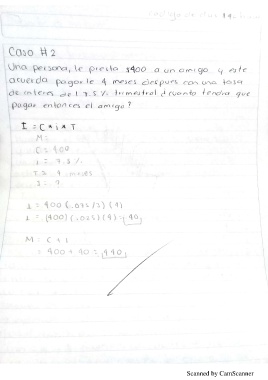 Caso #2
Una persona, le presta $400 a un amigo y este
acuerda pagarle 4 meses despues con una tasa
de interes del 7.5% trimestral ¿cuanto tendra que
pagar entonces el amigo?
I = C * i * T
M:
C = 400
i = 7.5%
T = 4 meses
I = ?
I = 400 (.075/3) (4)
I = (400) (.025) (4) = 40
M: C + I
= 400 + 40 = 440
Scanned by CamScanner